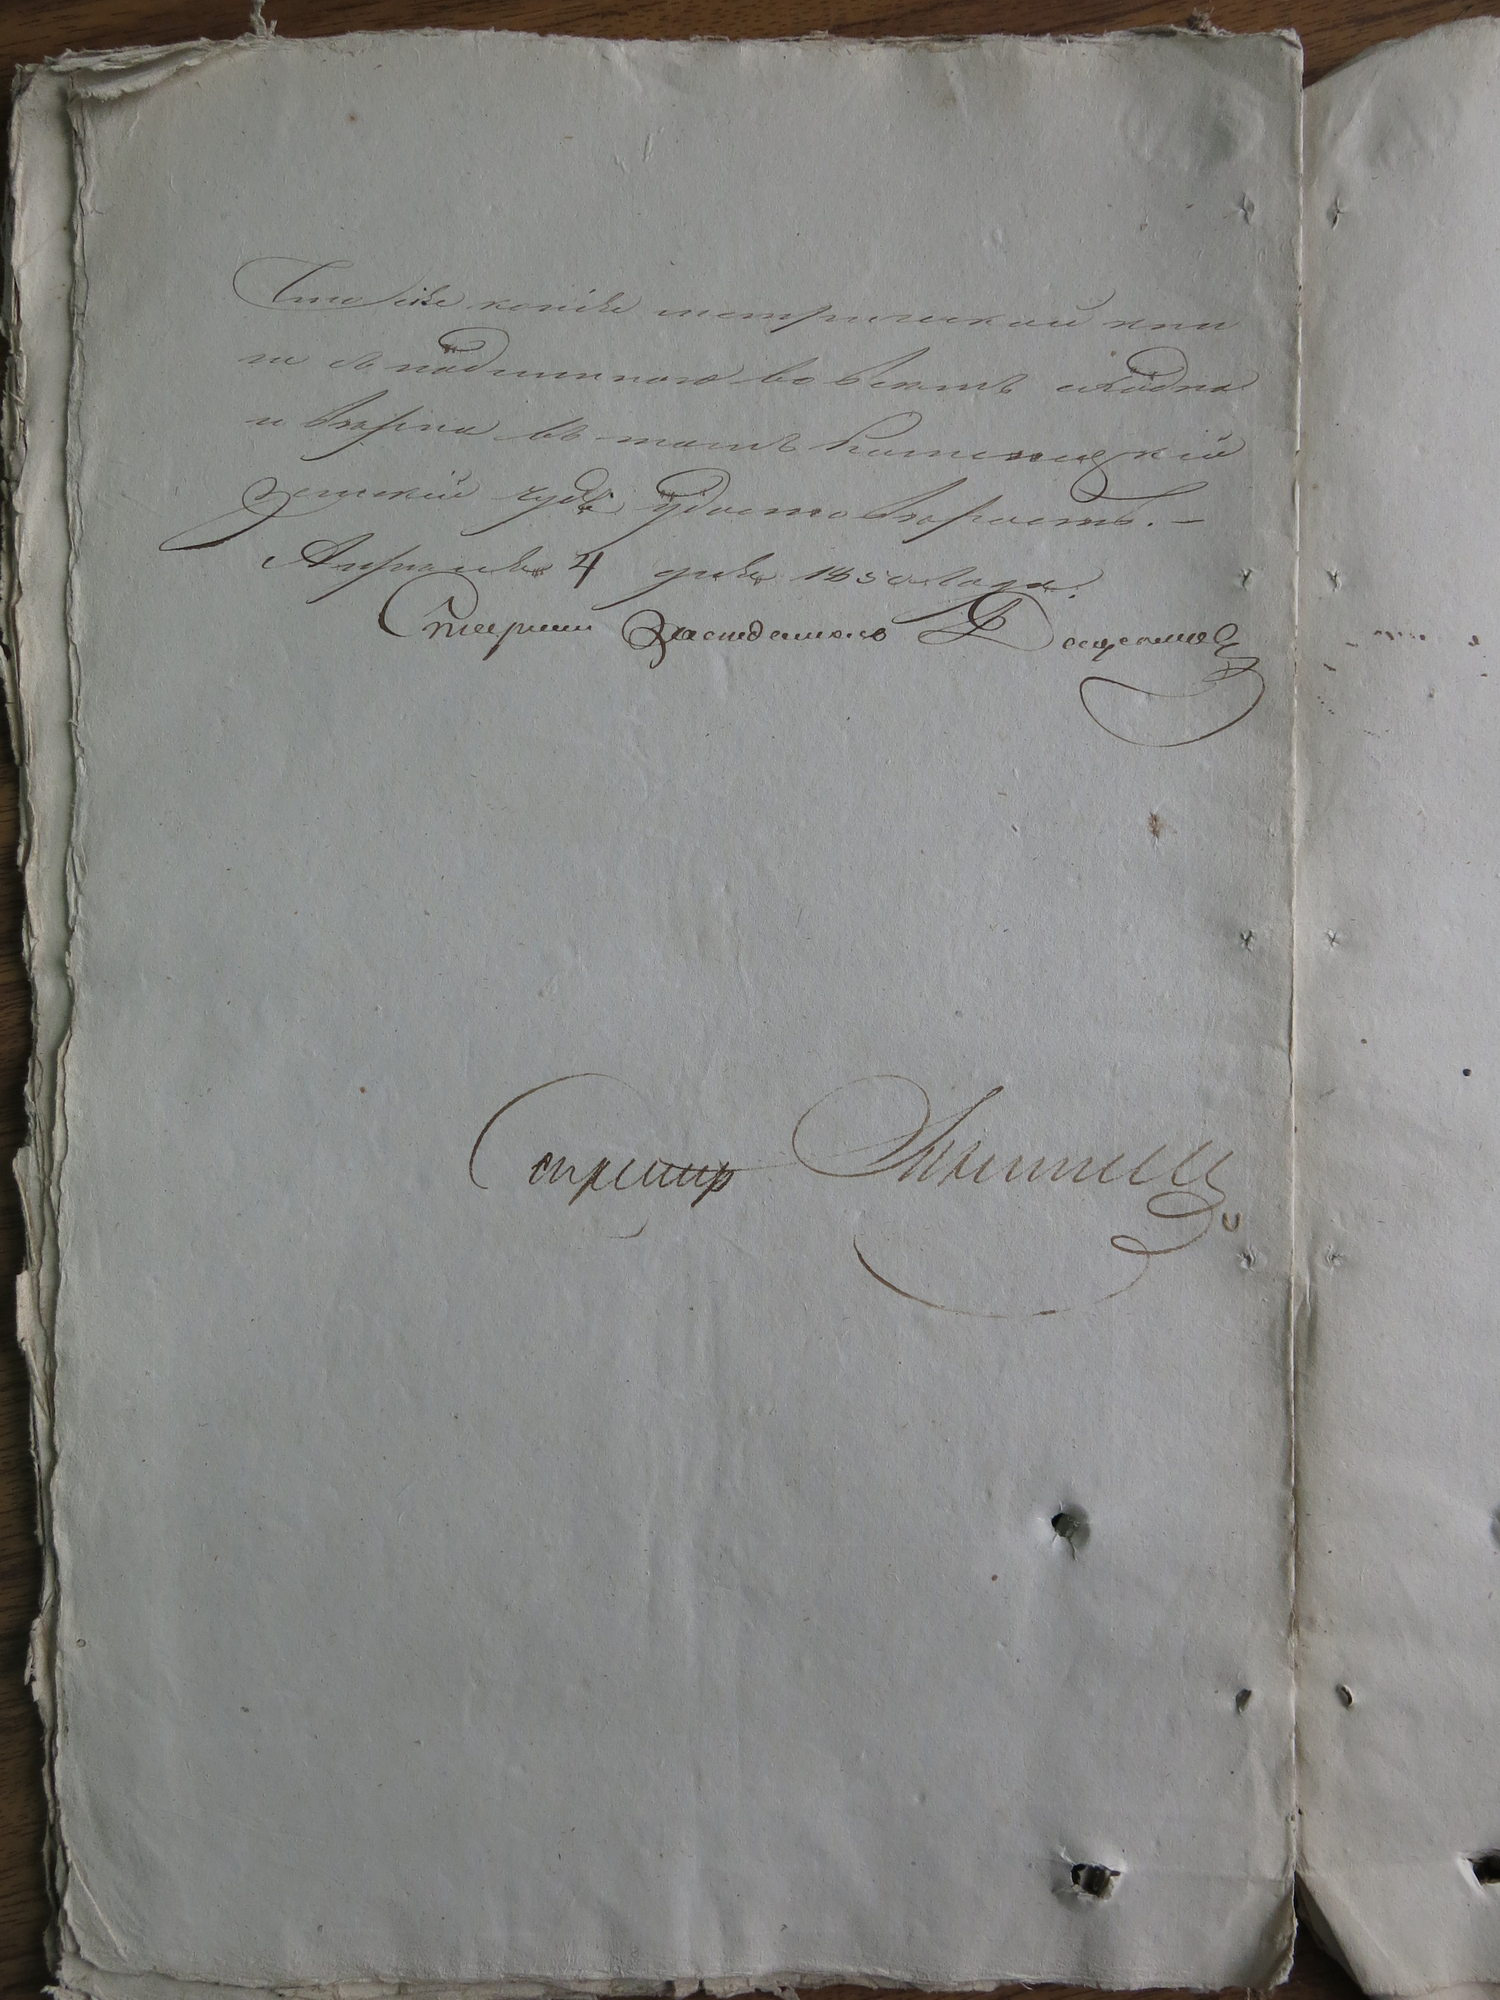 Что сія копія метрической кни
ги съ подлинною во всемъ сходна
и вѣрна въ томъ Каменецкій
Земскій судъ удостовѣряетъ. –
Апрѣля 4 дня 1850 года.
Старший Заседатель